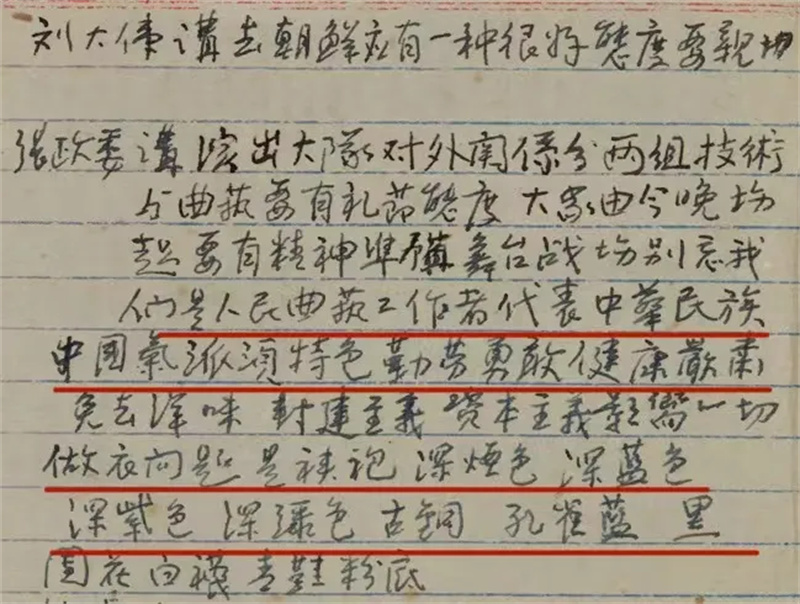 刘大伟講去朝鮮应有一种很好態度要親切
张政委講演出大隊对外関係分两组技術
与曲荻要有礼節態度大家由今晚场
起要有精神準備舞台战场别忘我
们是人民曲荻工作者代表中華民族
中国氣派須特色勤劳勇敢健康嚴肃
免去洋味 封建主義 资本主義影響一切
做衣问题是裌袍 深烟色 深藍色
深紫色 深绿色 古铜 孔雀蓝 黑
圆花白襪青鞋粉底